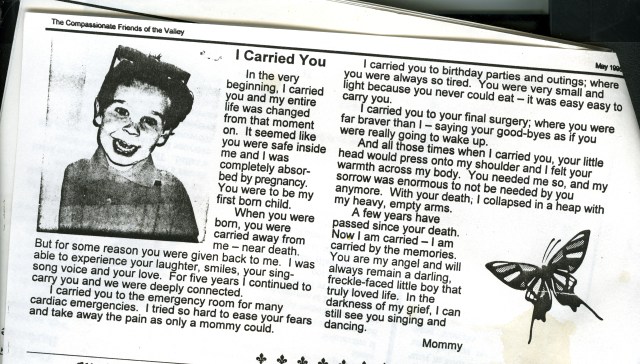 The Compassionate Friends of the Valley
May 199
I Carried You
In the very
beginning, I carried
you and my entire
life was changed
from that moment
on. It seemed like
you were safe inside
me and I was
completely absor-
bed by pregnancy.
You were to be my
first born child.
When you were
born, you were
carried away from
me – near death.
But for some reason you were given back to me. I was
able to experience your laughter, smiles, your sing-
song voice and your love. For five years I continued to
carry you and we were deeply connected.
I carried you to the emergency room for many
cardiac emergencies. I tried so hard to ease your fears
and take away the pain as only a mommy could.
I carried you to birthday parties and outings; where
you were always so tired. You were very small and
light because you never could eat – it was easy easy to
carry you.
I carried you to your final surgery; where you were
far braver than I – saying your good-byes as if you
were really going to wake up.
And all those times when I carried you, your little
head would press onto my shoulder and I felt your
warmth across my body. You needed me so, and my
sorrow was enormous to not be needed by you
anymore. With your death, I collapsed in a heap with
my heavy, empty arms.
A few years have
passed since your death.
Now I am carried – I am
carried by the memories.
You are my angel and will
always remain a darling,
freckle-faced little boy that
truly loved life. In the
darkness of my grief, I can
still see you singing and
dancing.
Mommy